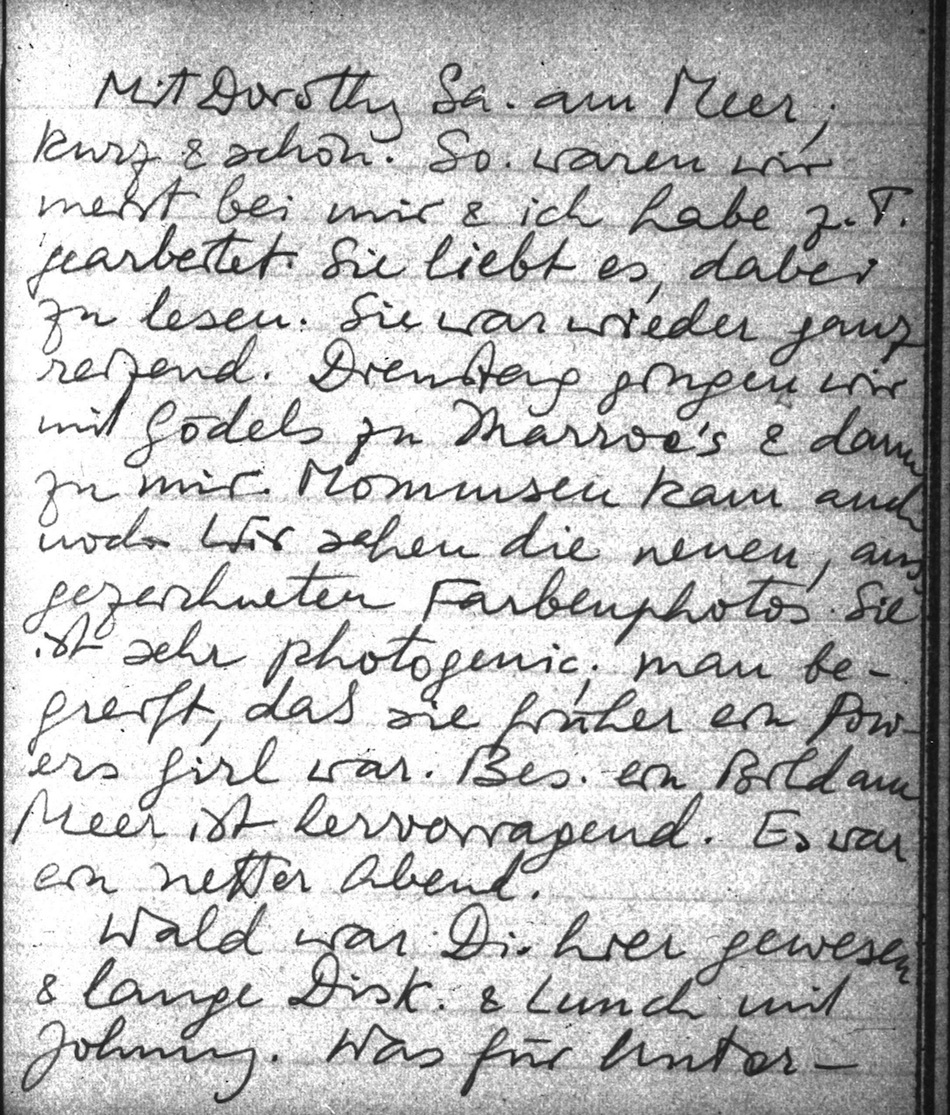 Mit Dorothy Sa. am Meer;
kurz & schön. So. waren wir
meist bei mir & ich habe z. T.
gearbeitet. Sie liebt es, dabei
zu lesen. Sie war wieder ganz
reizend. Dienstag gingen wir
mit Gödels zu Marroe's & dann
zu mir. Mommsen kam auch
noch. Wir sehen die neuen, aus
gezeichneten Farbenphotos. Sie
ist sehr photogenic; man be-
greift, daß sie früher ein Pow-
ers girl war. Bes. ein Bild am
Meer ist hervorragend. Es war
ein netter Abend.
Wald war Di. hier gewesen
& lange Disk. & Lunch mit
Johnny. Was für Unter-